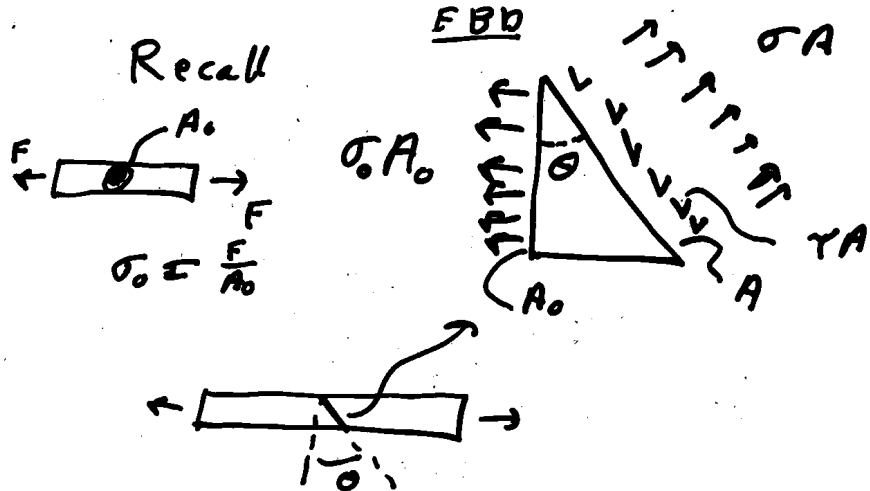 Recall
A₀
F
F
σ₀ = F/A₀
FBD
σA
σ₀A₀
θ
τA
A
A₀
θ